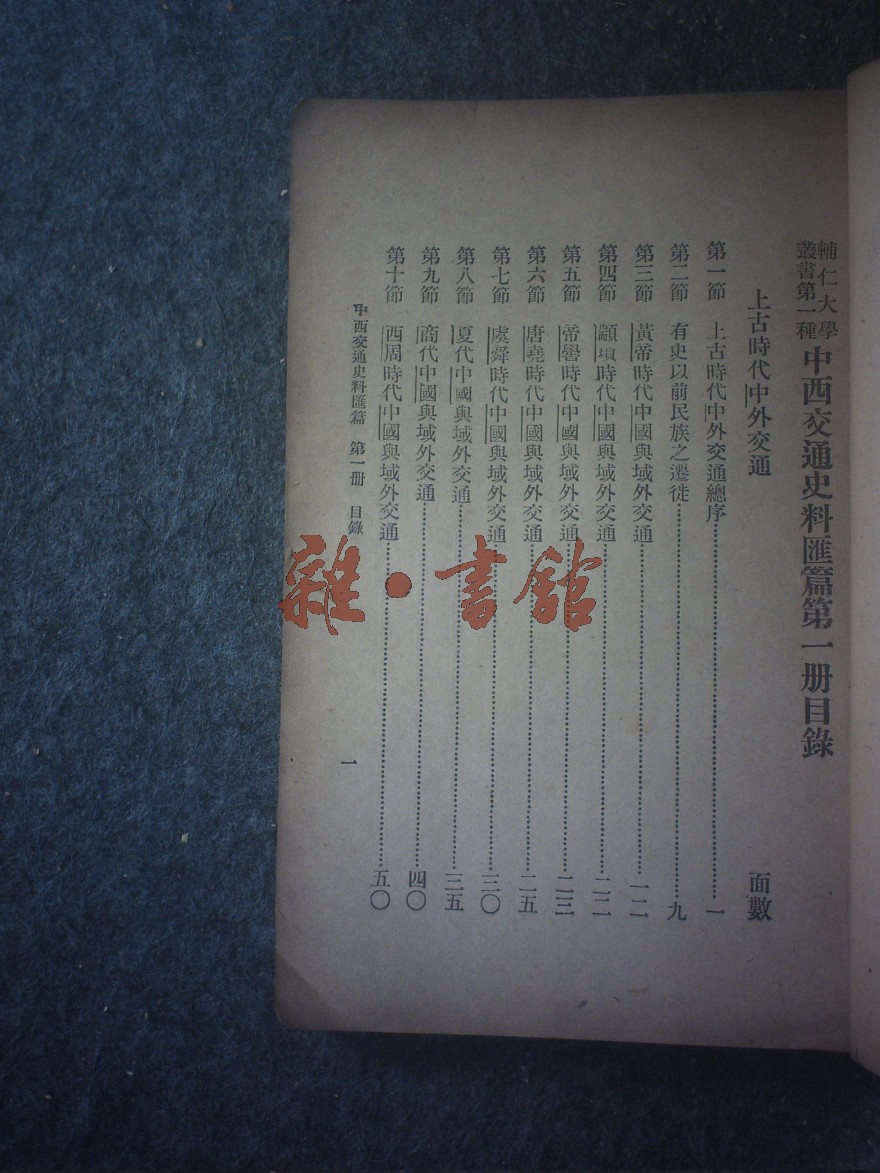 輔仁大學
叢書第一種
中西交通史料匯篇第一册目錄
上古時代中外交通 面數
第一節 上古時代中外交通總序 一
第二節 有史以前民族之遷徙 九
第三節 黃帝時代中國與域外交通 一二
第四節 顓頊時代中國與域外交通 二二
第五節 帝嚳時代中國與域外交通 二三
第六節 唐堯時代中國與域外交通 二五
第七節 虞舜時代中國與域外交通 三〇
第八節 夏代中國與域外交通 三五
第九節 商代中國與域外交通 四〇
第十節 西周時代中國與域外交通 五〇
中西交通史料匯篇 第一册 目錄 一
雜·書館